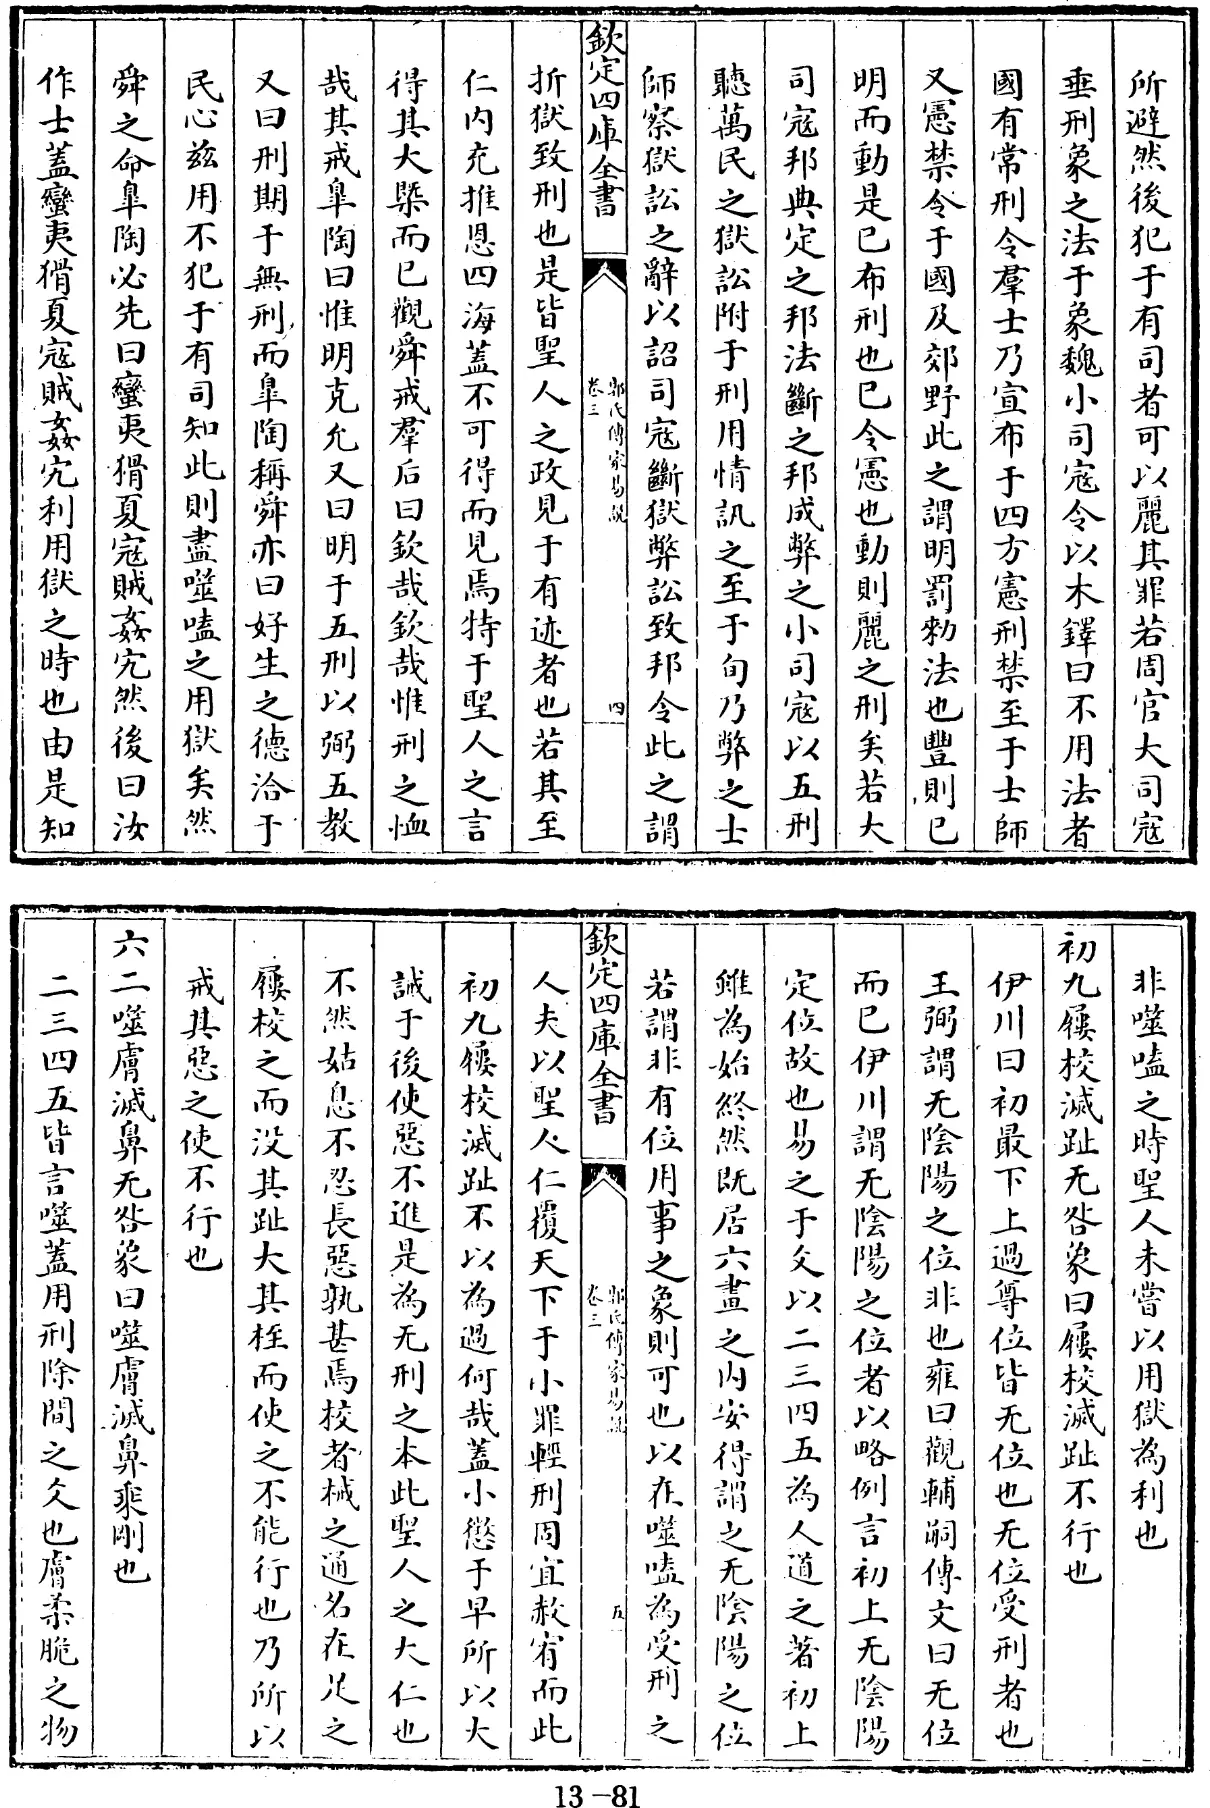 所避然後犯于有司者可以麗其罪若周官大司宼
垂刑象之法于象魏小司宼令以木鐸曰不用法者
國有常刑令羣士乃宣布于四方憲刑禁至于士師
又憲禁令于國及郊野此之謂明罰勑法也豐則已
明而動是已布刑也已令憲也動則麗之刑矣若大
司宼邦典定之邦法斷之邦成弊之小司宼以五刑
聽萬民之獄訟附于刑用情訊之至于旬乃弊之士
師察獄訟之辭以詔司宼斷獄弊訟致邦令此之謂
欽定四庫全書
郭氏傳家易說
卷三
四
折獄致刑也是皆聖人之政見于有迹者也若其至
仁内充推恩四海蓋不可得而見焉特于聖人之言
得其大槩而已觀舜戒羣后曰欽哉欽哉惟刑之恤
哉其戒臯陶曰惟明克允又曰明于五刑以弼五教
又曰刑期于無刑而臯陶稱舜亦曰好生之德洽于
民心兹用不犯于有司知此則盡噬嗑之用獄矣然
舜之命臯陶必先曰蠻夷猾夏宼賊姦宄然後曰汝
作士蓋蠻夷猾夏宼賊姦宄利用獄之時也由是知
非噬嗑之時聖人未嘗以用獄為利也
初九屨校滅趾无咎象曰屨校滅趾不行也
伊川曰初最下上過尊位皆无位也无位受刑者也
王弼謂无陰陽之位非也雍曰觀輔嗣傳文曰无位
而已伊川謂无陰陽之位者以略例言初上无陰陽
定位故也易之于爻以二三四五為人道之著初上
雖為始終然既居六畫之内安得謂之无陰陽之位
若謂非有位用事之象則可也以在噬嗑為受刑之
欽定四庫全書
郭氏傳家易說
卷三
五
人夫以聖人仁覆天下于小罪輕刑周宜赦宥而此
初九屨校滅趾不以為過何哉蓋小懲于早所以大
誡于後使惡不進是為无刑之本此聖人之大仁也
不然姑息不忍長惡孰甚焉校者械之通名在足之
屨校之而没其趾大其桎而使之不能行也乃所以
戒其惡之使不行也
六二噬膚滅鼻无咎象曰噬膚滅鼻乘剛也
二三四五皆言噬蓋用刑除間之爻也膚柔脆之物
13-81